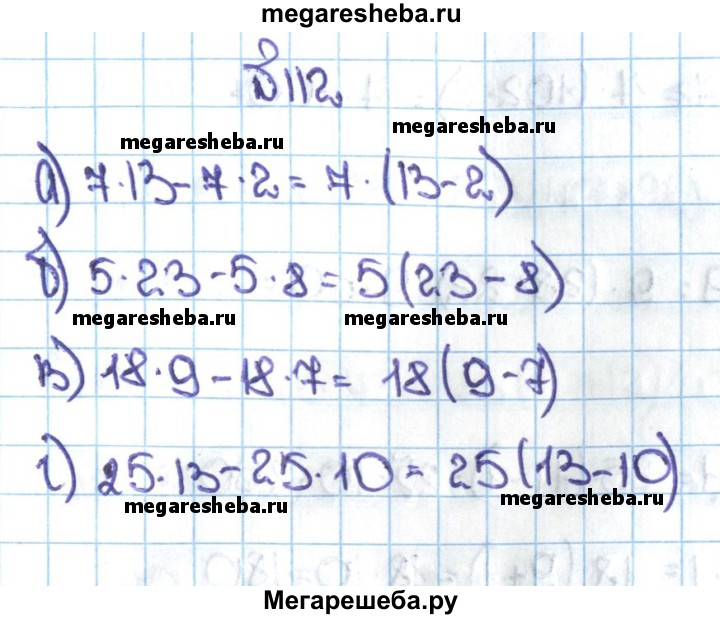 megaresheba.ru
№112.
megaresheba.ru
megaresheba.ru
а) 7·13-7·2=7·(13-2)
б) 5·23-5·8=5(23-8)
megaresheba.ru megaresheba.ru
в) 18·9-18·7=18(9-7)
г) 25·13-25·10=25(13-10)
megaresheba.ru megaresheba.ru
Мегарешеба.ру